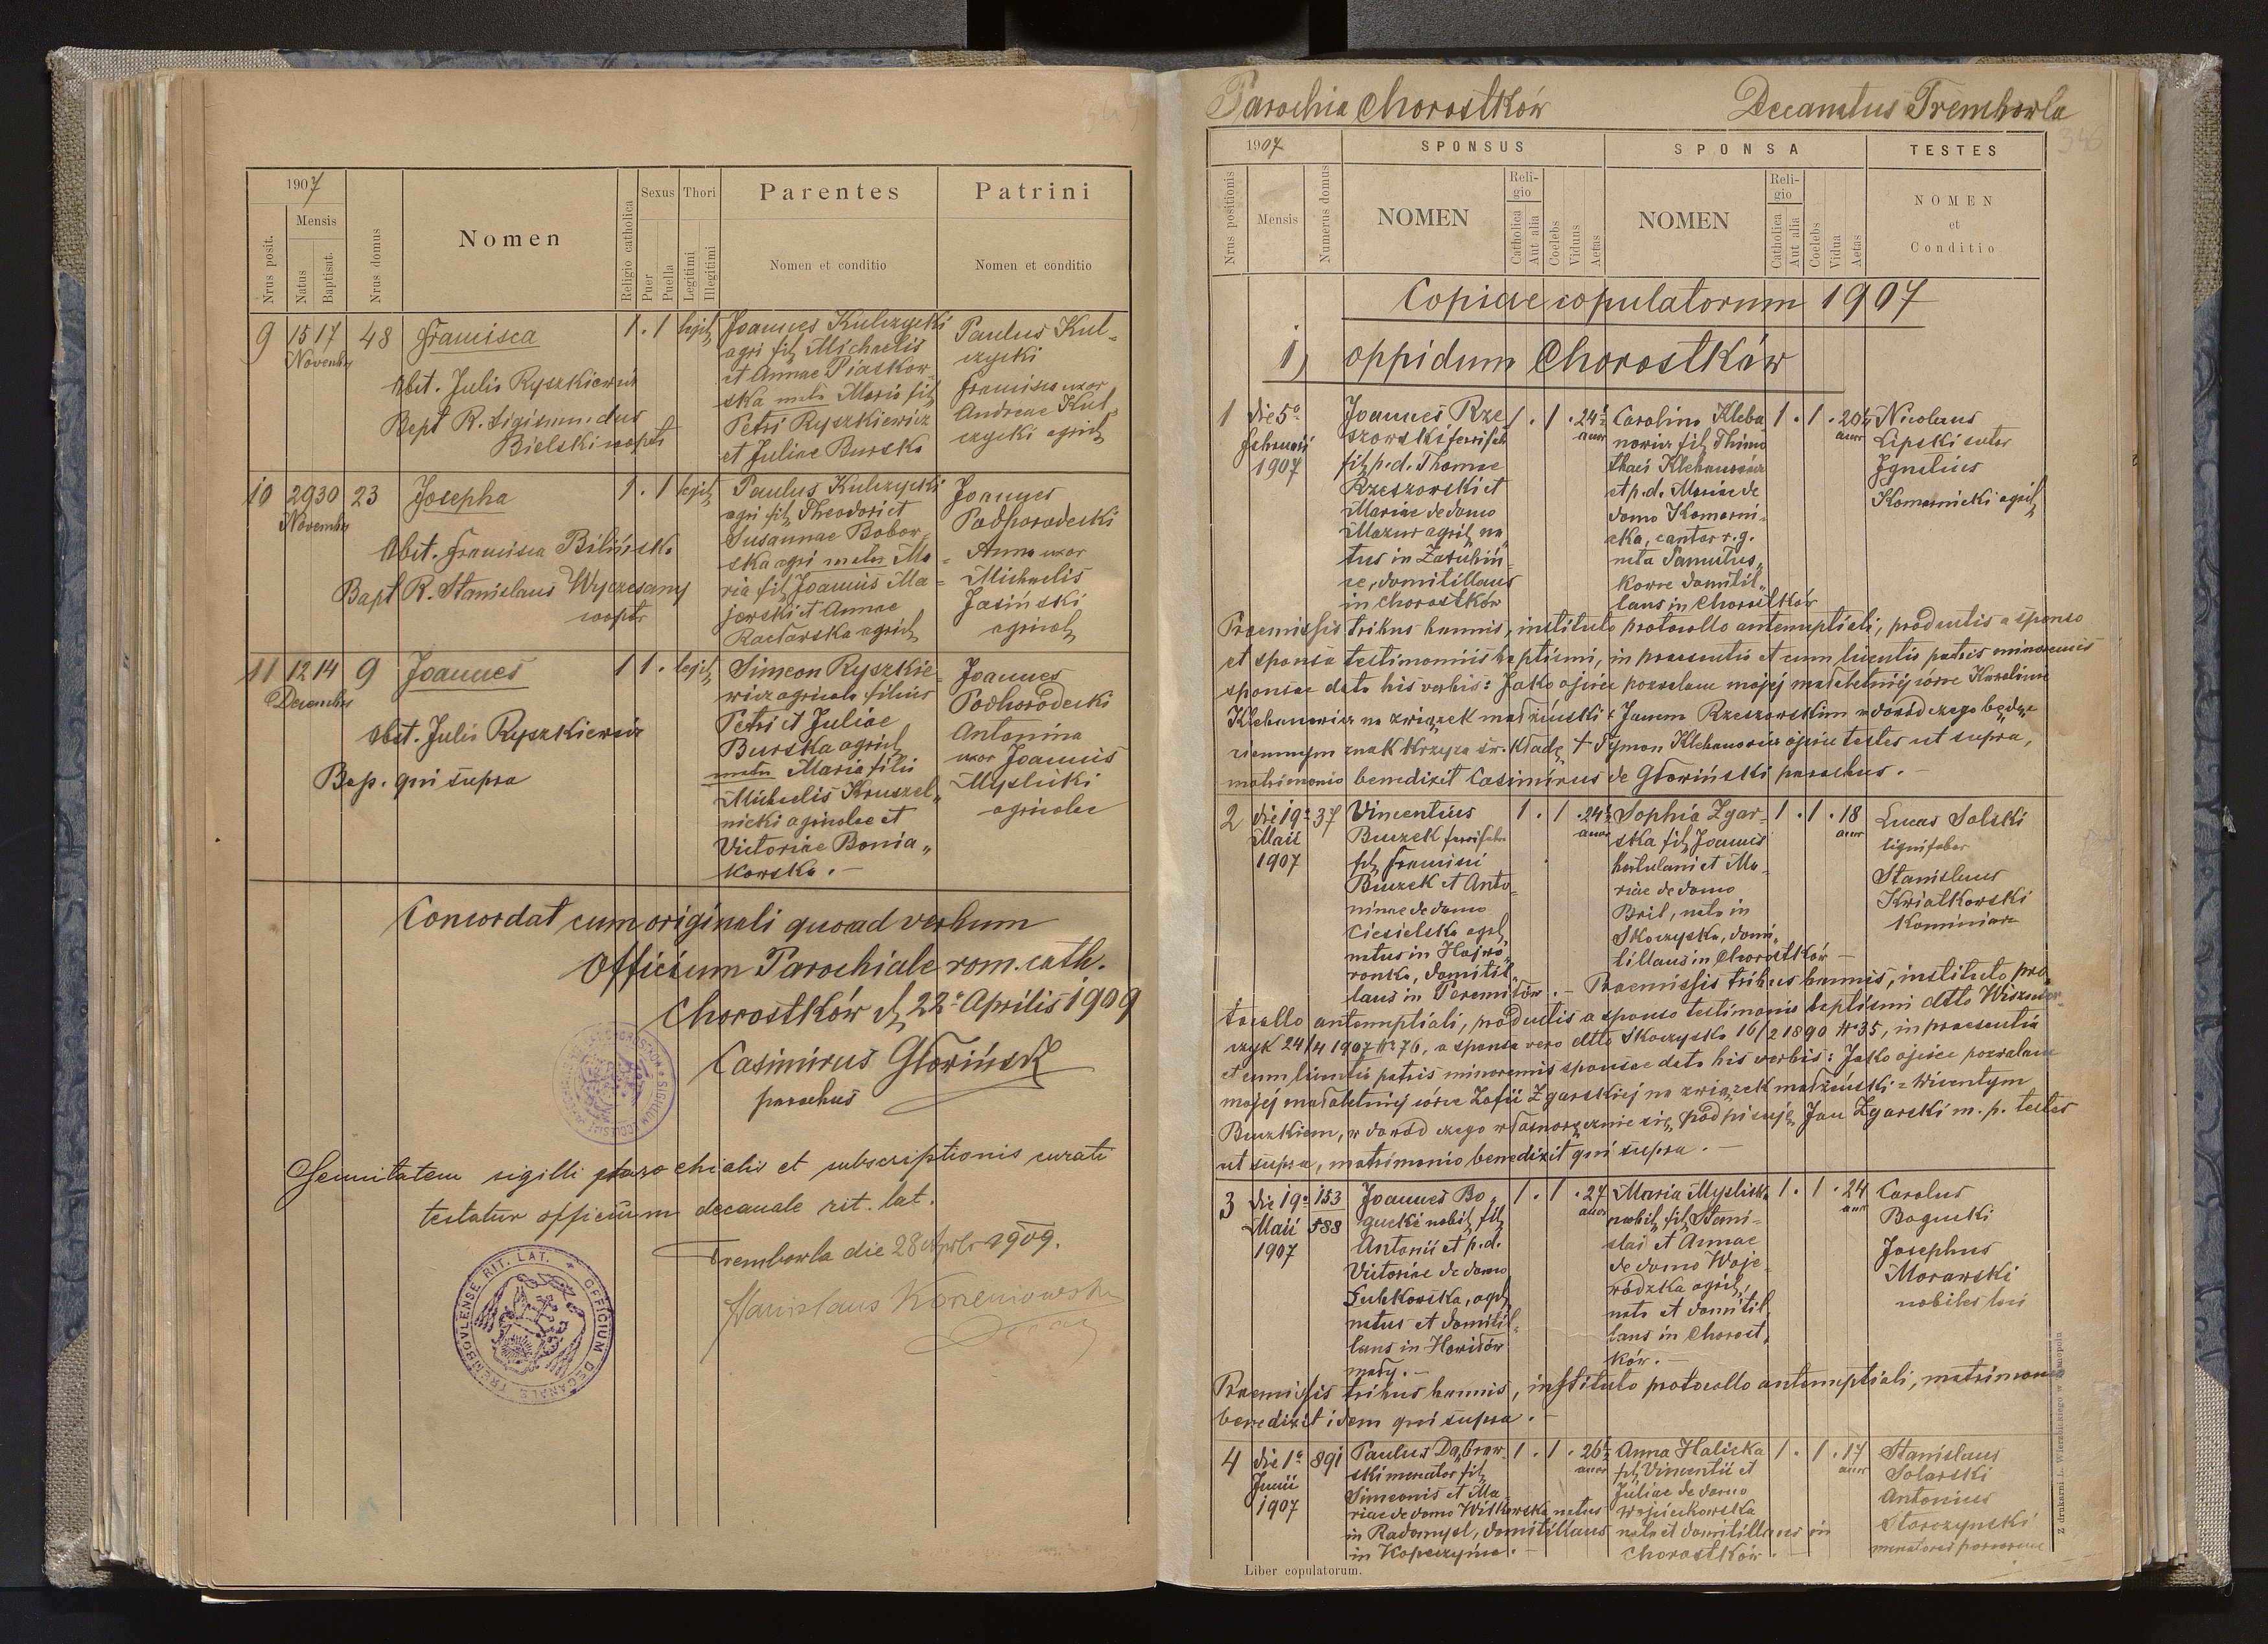 1907
Nrus posit.
Mensis
Natus
Baptisat.
Nrus domus
Nomen
Religio catholica
Sexus
Puer
Puella
Thori
Legitimi
Illegitimi
Parentes
Nomen et conditio
Patrini
Nomen et conditio
9 15 17 48 Francisca 1 . 1 legit
Novembr
Obst. Julia Ryszkiewicz
Bapt R. Sigismundus
Bielski coopt
Joannes Kulczycki
agri fil Michaelis
et Annae Piaskow-
ska mater Maria fil
Petri Ryszkiewicz
et Juliae Burska
Paulus Kul-
czycki
Francisca uxor
Andreae Kul-
czycki agricol
10 29 30 23 Josepha 1 . 1 legit
Novembr
Obst. Francisca Bilińska
Bapt R. Stanislaus Wyczesany
coopt
Paulus Kulczycki
agri fil Theodori et
Susannae Bobor-
ska agri mater Ma-
ria fil Joannis Ma-
jewski et Annae
Racławska agricol
Joannes
Podhorodecki
Anna uxor
Michaelis
Jasiński
agricol
11 12 14 9 Joannes 1 1 . legit
Decembr
Obst. Julia Ryszkiewicz
Bap. qui supra
Simeon Ryszkie-
wicz agricola filius
Petri et Juliae
Burska agricol
mater Maria filia
Michaelis Kruszel-
nicki agricolae et
Victoriae Bonia-
kowska . -
Joannes
Podhorodecki
Antonina
uxor Joannis
Myslicki
agricolae
Concordat cum originali quoad verbum
Officium Parochiale rom. cath.
Chorostków d 22o Aprilis 1909
Casimirus Głowiński
parochus
Genuitatem sigilli parochialis et subscriptionis curati
testatur officium decanale rit. lat.
Trembowla die 28 Aprilis 1909.
Stanislaus Korzeniowski
OFFICIUM DECANALE TREMBOVLENSE RIT. LAT.
Parochia Chorostków Decanatus Trembowla
346
1907
SPONSUS
SPONSA
TESTES
Nrus positionis
Mensis
Numerus domus
NOMEN
Religio
Catholica
Aut alia
Coelebs
Viduus
Aetas
NOMEN
Religio
Catholica
Aut alia
Coelebs
Vidua
Aetas
NOMEN
et
Conditio
Copiae copulatorum 1907
1) oppidum Chorostków
1 die 5o
Februarii
1907
Joannes Rze-
szowski ferrifab
fil p.d. Thomae
Rzeszowski et
Mariae de domo
Mazur agricol na-
tus in Zascibin-
ce, domicilians
in Chorostków
1 . 1 . 24½
annor
Carolina Kleba-
nowicz fil Thimo
thaei Klebanowicz
et p.d. Mariae de
domo Komarni-
cka, cantor r.g.
nata
kowce domicil-
lans in Chorostków
1 . 1 . 20½
annor
Nicolaus
Lipski sutor
Ignatius
Komarnicki agricol
Praemissis tribus bannis, instituto protocollo antenuptiali, productis a sponso
et sponsa testimoniis baptismi, in praesentia et cum licentia patris minorennis
sponsae data his verbis: Jako ojciec pozwalam mojej małoletniej córce Karolinie
Klebanowicz na związek małżeński z Janem Rzeszowskim w dowód czego będąc
niemnym znak krzyża św. kładę † Tymon Klebanowicz ojciec testes ut supra,
matrimonio benedixit Casimirus de Głowiński parochus . -
2 die 19o 37
Maii
1907
Vincentius
Buczek ferrifaber
fil Francisci
Buczek et Anto-
ninae de domo
Ciesielska agril
natus in Hajwo-
ronka, domicil-
lans in Peremiłow . -
1 . 1 . 24½
annor
Sophia Zgar-
ska fil Joannis
hortulani et Ma-
riae de domo
Bril, nata in
Skoczyska, domi-
cillans in Chorostków -
1 . 1 . 18
annor
Lucas Solski
lignifaber
Stanislaus
Kwiatkowski
Kominiarz
Praemissis tribus bannis, instituto pro-
tocollo antenuptiali, productis a sponso testimonio baptismi dtto
czyk 24/4 1907 No 76, a sponsa vero dtto Skoczyska 16/2 1890 No 35, in praesentia
et cum licentia patris minorennis sponsae data his verbis: Jako ojciec pozwalam
mojej małoletniej córce Zofii Zgarskiej na związek małżeński z Wicentym
Buczkiem, w dowód czego własnoręcznie się podpisuję Jan Zgarski m.p. testes
ut supra, matrimonio benedixit qui supra . -
3 die 19o 153
Maii 588
1907
Joannes Bo-
gucki nobil fil
Antonii et p.d.
Victoriae de domo
agril
natus et domicil-
lans in Howiłów
mały . -
1 . 1 . 27
annor
Maria Myslicka
nobil fil Stani-
slai et Annae
de domo Woje-
wódzka agricol,
nata et domicil
lans in Chorost-
ków . -
1 . 1 . 24
annor
Carolus
Bogucki
Josephus
Morawski
nobiles loci
Praemissis tribus bannis, instituto protocollo antenuptiali, matrimonio
benedixit idem qui supra . -
4 die 1o 891
Junii
1907
Paulus Dąbrow-
ski mercator fil
Simeonis et Ma-
riae de domo Witkowska natus
in Radomysl, domicillans
in Kopeczyńce . -
1 . 1 . 26½
annor
Anna Halicka
fil Vincentii et
Juliae de domo
Wojciechowska
nata et domicillans in
Chorostków . -
1 . 1 . 17
annor
Stanislaus
Solarski
Antonius
Storozynski
mercatores porcorum
Liber copulatorum.
Z drukarni L. Wierzbickiego w Tarnopolu